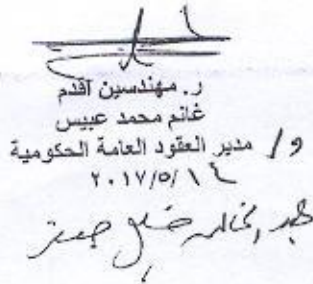 ر. مهندسين أقدم
غانم محمد عبيس
و/ مدير العقود العامة الحكومية
٢٠١٧/٥/١٤